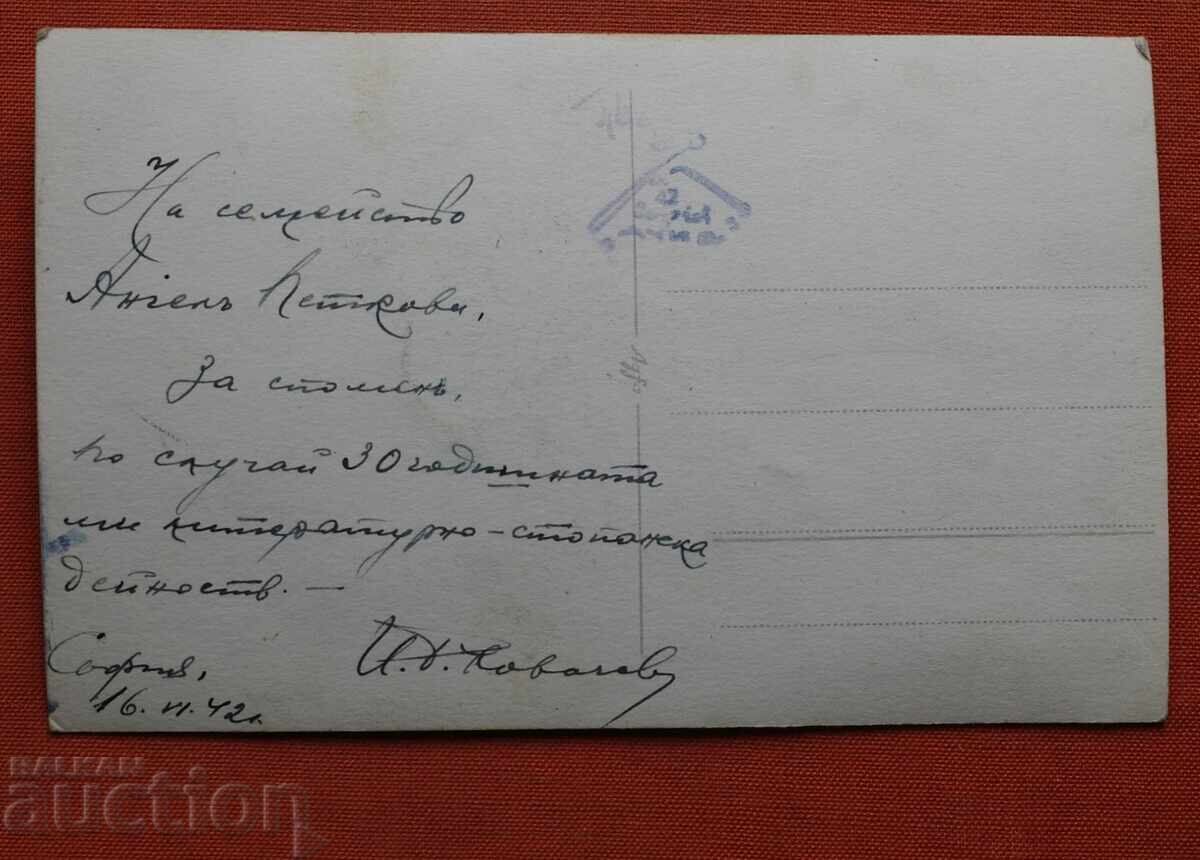 На семейство
Ангелъ Петкови,
За споменъ,
по случай 30 годишната
ми литературно-стопанска
дейность. —
София,
16. VI. 42 г.
И. Д. Ковачев
Agfa
BALKAN
auction